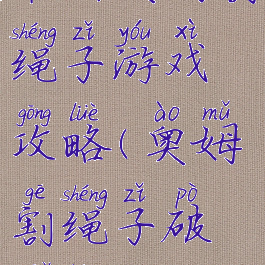 shéng zǐ yóu xì
绳子游戏
gōng lüè ào mǔ
攻略(奥姆
gē shéng zǐ pò
割绳子破